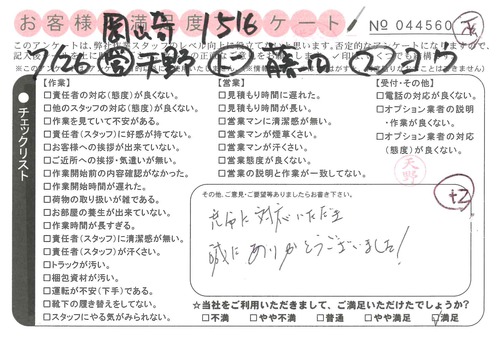 お客様 満足度 ケート
岡山寺 1516
No 044560
7/26 天野
【作業】
□責任者の対応(態度)が良くない。
□他のスタッフの対応(態度)が良くない。
□作業を見ていて不安がある。
□責任者(スタッフ)に好感が持てない。
□お客様への挨拶が出来ていない。
□ご近所への挨拶・気遣いが無い。
□作業開始前の内容確認がなかった。
□作業開始時間が遅れた。
□荷物の取り扱いが雑である。
□お部屋の養生が出来ていない。
□作業時間が長すぎる。
□責任者(スタッフ)に清潔感が無い。
□責任者(スタッフ)が汗くさい。
□トラックが汚い。
□梱包資材が汚い。
□運転が不安(下手)である。
□靴下の履き替えをしてない。
□スタッフにやる気がみられない。
チェックリスト
【営業】
□見積もり時間に遅れた。
□見積もり時間が長い。
□営業マンに清潔感が無い。
□営業マンが煙草くさい。
□営業マンが汗くさい。
□営業態度が良くない。
□営業の説明と作業が一致してない。
【受付・その他】
□電話の対応が良くない。
□オプション業者の説明・作業が良くない。
□オプション業者の対応(態度)が良くない。
天野
+2
その他、ご意見・ご要望等ありましたらお書き下さい。
対応いただき
誠にありがとうございました!
☆当社をご利用いただきまして、ご満足いただけたでしょうか?
□不満 □やや不満 □普通 □やや満足 □満足